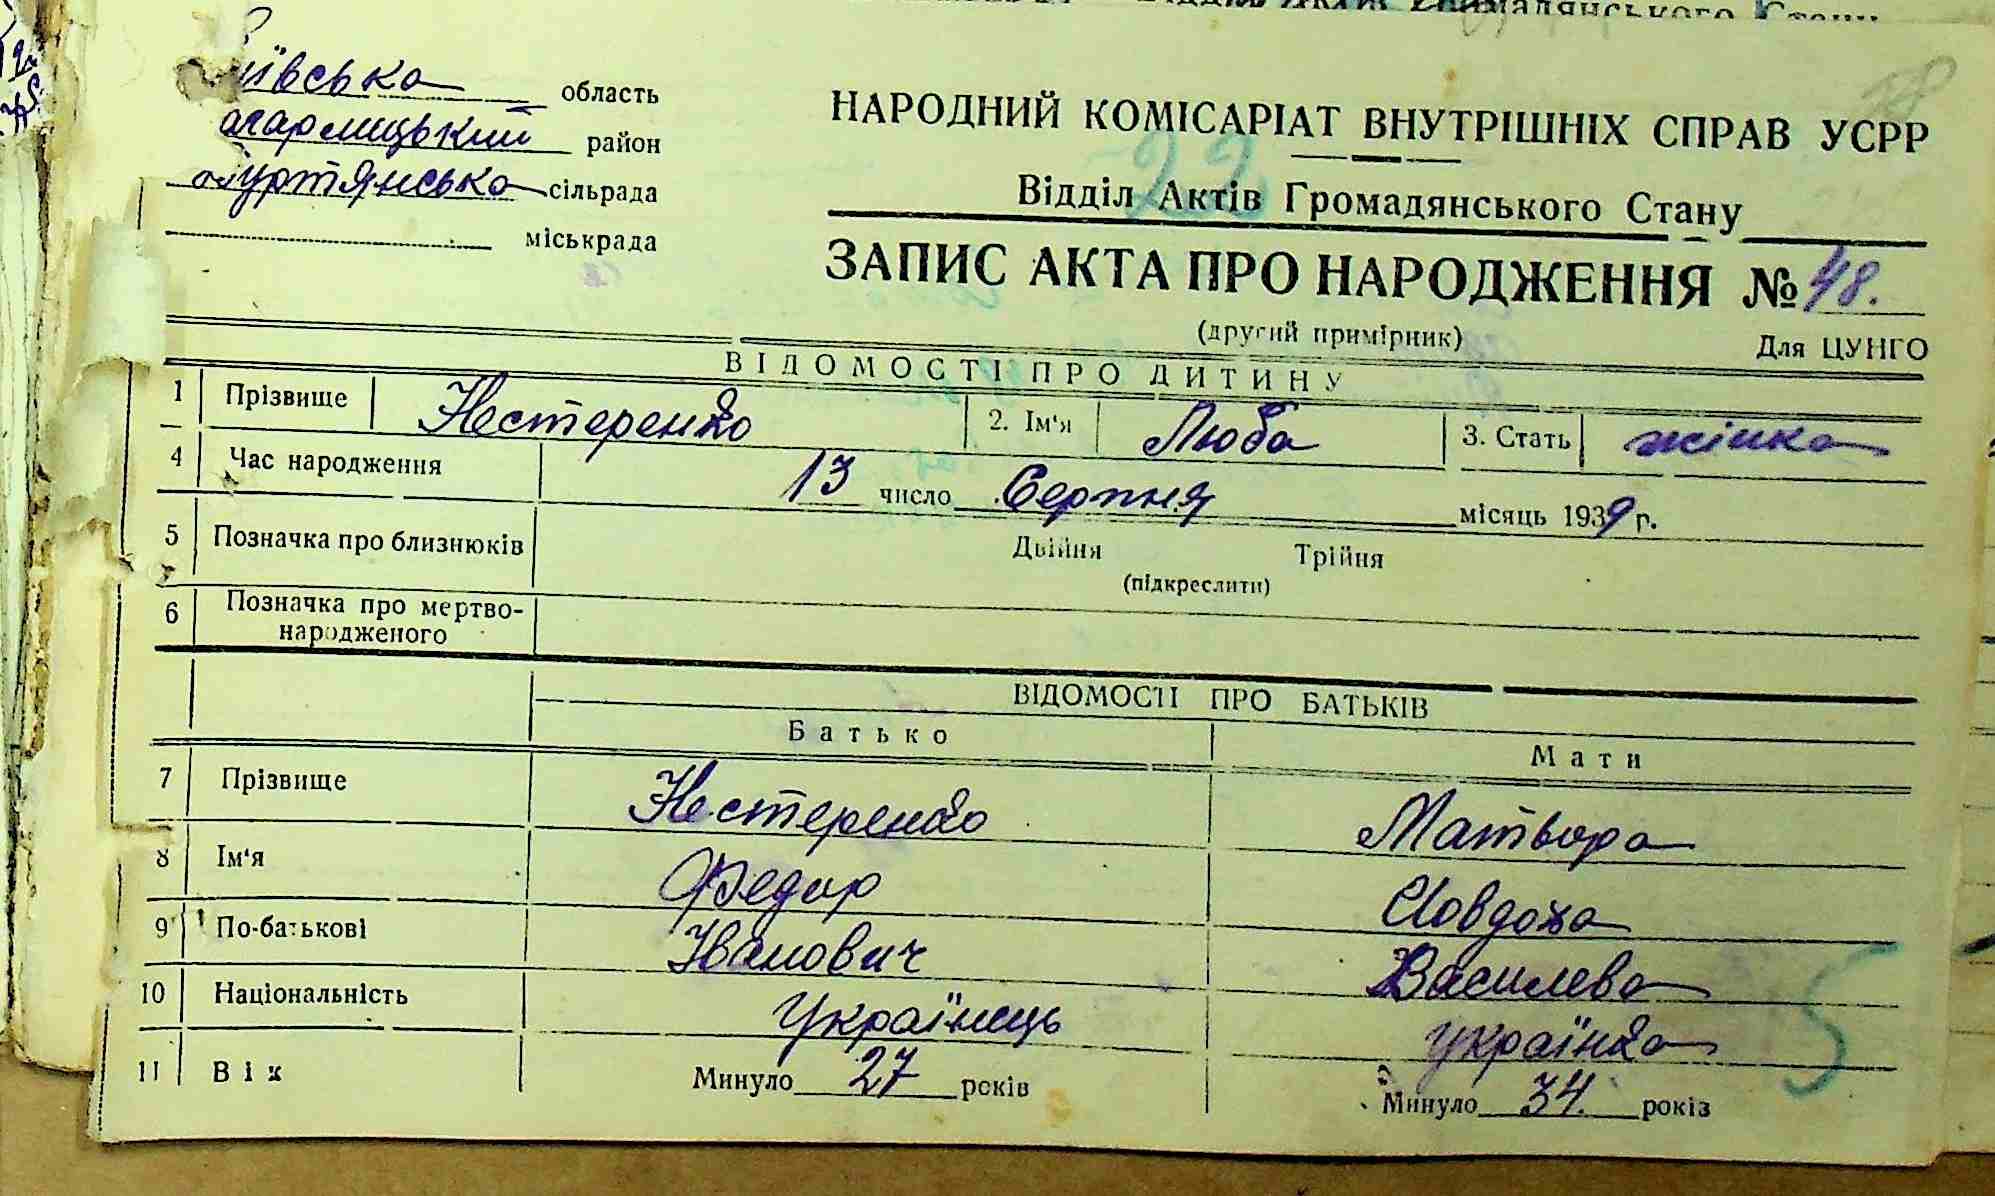 Громадянського Стану
ївська область
агарлицький район
уртянська сільрада
міськрада
НАРОДНИЙ КОМІСАРІАТ ВНУТРІШНІХ СПРАВ УСРР
22
Відділ Актів Громадянського Стану
ЗАПИС АКТА ПРО НАРОДЖЕННЯ № 48.
(другий примірник) Для ЦУНГО
ВІДОМОСТІ ПРО ДИТИНУ
1 Прізвище Нестеренко 2. Ім'я Люба 3. Стать жінка
4 Час народження 13 число Серпня місяць 1939 г.
5 Позначка про близнюків Двійня Трійня
(підкреслити)
6 Позначка про мертво-
народженого
ВІДОМОСТІ ПРО БАТЬКІВ
Батько Мати
7 Прізвище Нестеренко Матвора
8 Ім'я Федир Иовдоха
9 По-батькові Иванович Василева
10 Національність Українець українка
11 Вік Минуло 27 років Минуло 34 років
5